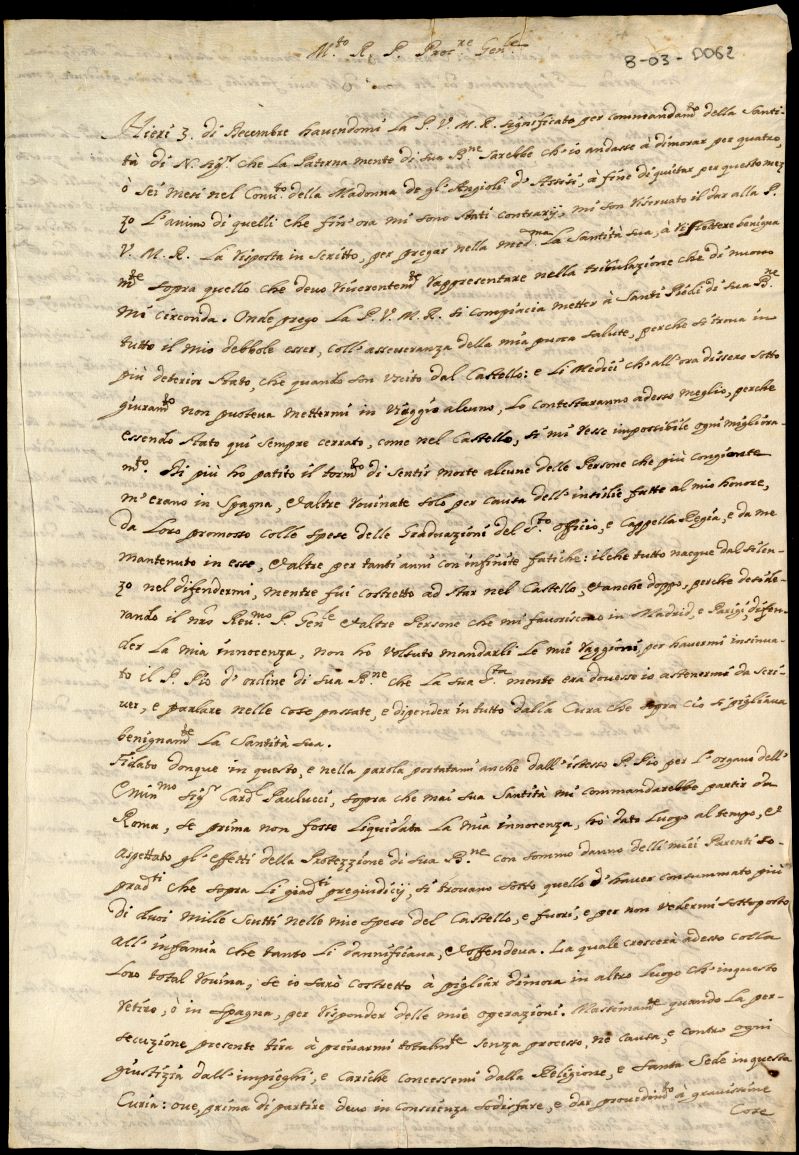 M.to R. P. Proc.re Gen.le
B-03-D062
Hieri 3. di Decembre havendomi La P. V. M. R. significato per commandam.to della Santi-
tà di N. Sig.r che La Paterna mente di Sua B.ne sarebbe ch'io andasse à dimorar per quatro,
ò sei mesi nel Conv.to della Madonna de gl'Angioli d'Assisi, à fine di quietar per questo mez
zo L'animo di quelli che fin'ora mi sono stati contrarij, mi son riservato il dar alla P.
V. M. R. La risposta in scritto, per pregar nella med.ma La Santità sua, à riflettere benigna
m.te sopra quello che devo riverentem.te rappresentare nella tribulazione che di nuovo
mi circonda. Onde prego La P. V. M. R. si compiacia metter à Santi Piedi di sua B.ne
tutto il mio debbole esser, coll'asseveranza della mia puoca salute, perche si trova in
più deterior stato, che quando son uscito dal Castello: e Li Medici ch'all'ora dissero sotto
giuram.to non puoteva mettermi in viaggio alcuno, Lo contestaranno adesso meglio, perche
essendo stato qui sempre serrato, come nel Castello, si mi rese impossibile ogni migliora-
m.to. Di più ho patito il torm.to di sentir morte alcune delle Persone che più congionte
m'erano in Spagna, & altre rovinate solo per causa dell'insidie fatte al mio honore,
da Loro promosso colle spese delle Graduazioni del S.to Officio, e Cappella Regia, e da me
mantenuto in esse, & altre per tanti anni con infinite fatiche: il che tutto nacque dal silen-
zo nel difendermi, mentre fui costretto ad star nel Castello, & anche doppo, perche deside-
rando il nro Reu.mo P. Gen.le & altre Persone che mi favoriscono in Madrid, e Parigi, difen-
der La mia innocenza, non ho volsuto mandarli Le mie raggioni, per havermi insinua-
to il P. Pio d'ordine di sua B.ne che La sua S.ta mente era dovesse io astenermi da scri-
ver, e parlare nelle cose passate, e dipender in tutto dalla Cura che sopra ciò si pigliava
benignam.te La Santità sua.
Fidato donque in questo, e nella parola portatami anche dall'istesso P. Pio per L'organo dell'
Emin.mo Sig.r Card.l Paulucci, sopra che mai sua Santità mi commandarebbe partir da
Roma, se prima non fosse Liquidata La mia innocenza, hò dato Luogo al tempo, &
aspettato gl'effetti della Protezzione di sua B.ne con sommo danno delli miei Parenti so-
prad.ti che sopra Li giad.ti pregiudicij, si trovano sotto quello d'haver consummato più
di duoi mille scutti nelle mie spese del Castello, e fuori, e per non vedermi sottoposto
all'infamia che tanto Li dannificava, & offendeva. La quale crescerà adesso colla
Loro total rovina, se io sarò costretto à pigliar dimora in altro Luogo ch'in questo
retiro, ò in Spagna, per risponder delle mie operazioni. Massimam.te quando La per-
secuzione presente tira à privarmi totalm.te senza processo, nè causa, e contro ogni
giustizia dall'impieghi, e cariche concessemi dalla Religione, e Santa Sede in questa
Curia: ove, prima di partire devo in conscienza sodisfare, e dar provedim.to à gravissime
Cose